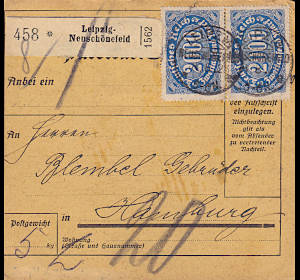 458 *
Leipzig-
Neuschönefeld
1562
Deutsches Reich
2000
Deutsches Reich
2000
8/1
Anbei ein
der Aufschrift
einzulegen.
Nichtbeachtung
gilt als
vom Absender
zu vertretender
Nachteil.
An Herren
Blembel Gebrüder
in Hamburg
Postgewicht
5 kg
20
Wohnung
(Straße und Hausnummer)